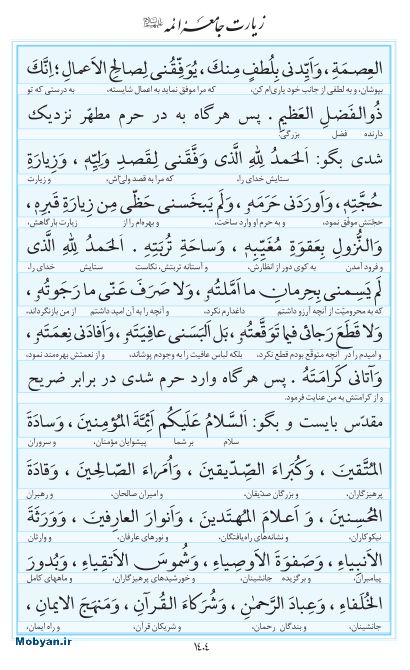 زیارت جامعهٔ ائمه علیهم‌السلام
العِصمَةِ، وَاَیِّدنی بِلُطفٍ مِنكَ، یُوَفِّقُنی لِصالِحِ الاَعمالِ؛ اِنَّكَ
بپوشان، و به لطفی از جانب خود یاری‌ام کن، که مرا موفق نماید به اعمال شایسته، به درستی که تو
ذُوالفَضلِ العَظیمِ. پس هرگاه به در حرم مطهّر نزدیک
دارنده فضل بزرگی.
شدی بگو: اَلحَمدُ لِلّٰهِ الَّذی وَفَّقَنی لِقَصدِ وَلِیِّهٖ، وَزِیارَةِ
ستایش خدای را، که مرا به قصد ولی‌اش، و زیارت
حُجَّتِهٖ، وَاَورَدَنی حَرَمَهٗ، وَلَم یَبخَسنی حَظّی مِن زِیارَةِ قَبرِهٖ،
حجتش موفق نمود، و به حرم او وارد ساخت، و بهره‌ام را از زیارت بارگاهش،
وَالنُّزولِ بِعَقوَةِ مُغَیَّبِهٖ، وَساحَةِ تُربَتِهٖ. اَلحَمدُ لِلّٰهِ الَّذی
و فرود آمدن به کوی دور از انظارش، و آستانه تربتش، نکاست ستایش خدای را،
لَم یَسِمنی بِحِرمانِ ما اَمَّلتُهٗ، وَلا صَرَفَ عَنّی ما رَجَوتُهٗ،
که به محرومیّت از آنچه آرزو داشتم داغدارم نکرد، و آنچه را به آن امید داشتم از من بازنگرداند،
وَلا قَطَعَ رَجائی فیما تَوَقَّعتُهٗ، بَل اَلبَسَنی عافِیَتَهٗ، وَاَفادَنی نِعمَتَهٗ،
و امیدم را در آنچه متوقع بودم قطع نکرد، بلکه لباس عافیت را به وجودم پوشاند، و از نعمتش بهره‌مند نمود،
وَآتانی كَرامَتَهٗ. پس هرگاه وارد حرم شدی در برابر ضریح
و از کرامتش به من عنایت فرمود.
مقدّس بایست و بگو: اَلسَّلامُ عَلَیكُم اَئِمَّةَ المُؤمِنینَ، وَسادَةَ
سلام بر شما پیشوایان مؤمنان، و سروران
المُتَّقینَ، وَكُبَراءَ الصِّدّیقینَ، وَاُمَراءَ الصّالِحینَ، وَقادَةَ
پرهیزگاران، و بزرگان صدّیقان، و امیران صالحان، و رهبران
المُحسِنینَ، وَ اَعلامَ المُهتَدینَ، وَاَنوارَ العارِفینَ، وَوَرَثَةَ
نیکوکاران، و نشانه‌های راه‌یافتگان، و نورهای عارفان، و وارثان
الاَنبیاءِ، وَصَفوَةَ الاَوصیاءِ، وَشُموسَ الاَتقیاءِ، وَبُدورَ
پیامبران، و برگزیده جانشینان، و خورشیدهای پرهیزگاران، و ماههای کامل
الخُلَفاءِ، وَعِبادَ الرَّحمٰنِ، وَشُرَكاءَ القُرآنِ، وَمَنهَجَ الایمانِ،
جانشینان، و بندگان رحمان، و شریکان قرآن، و راه ایمان،
۱۴۰۴
Mobyan.ir